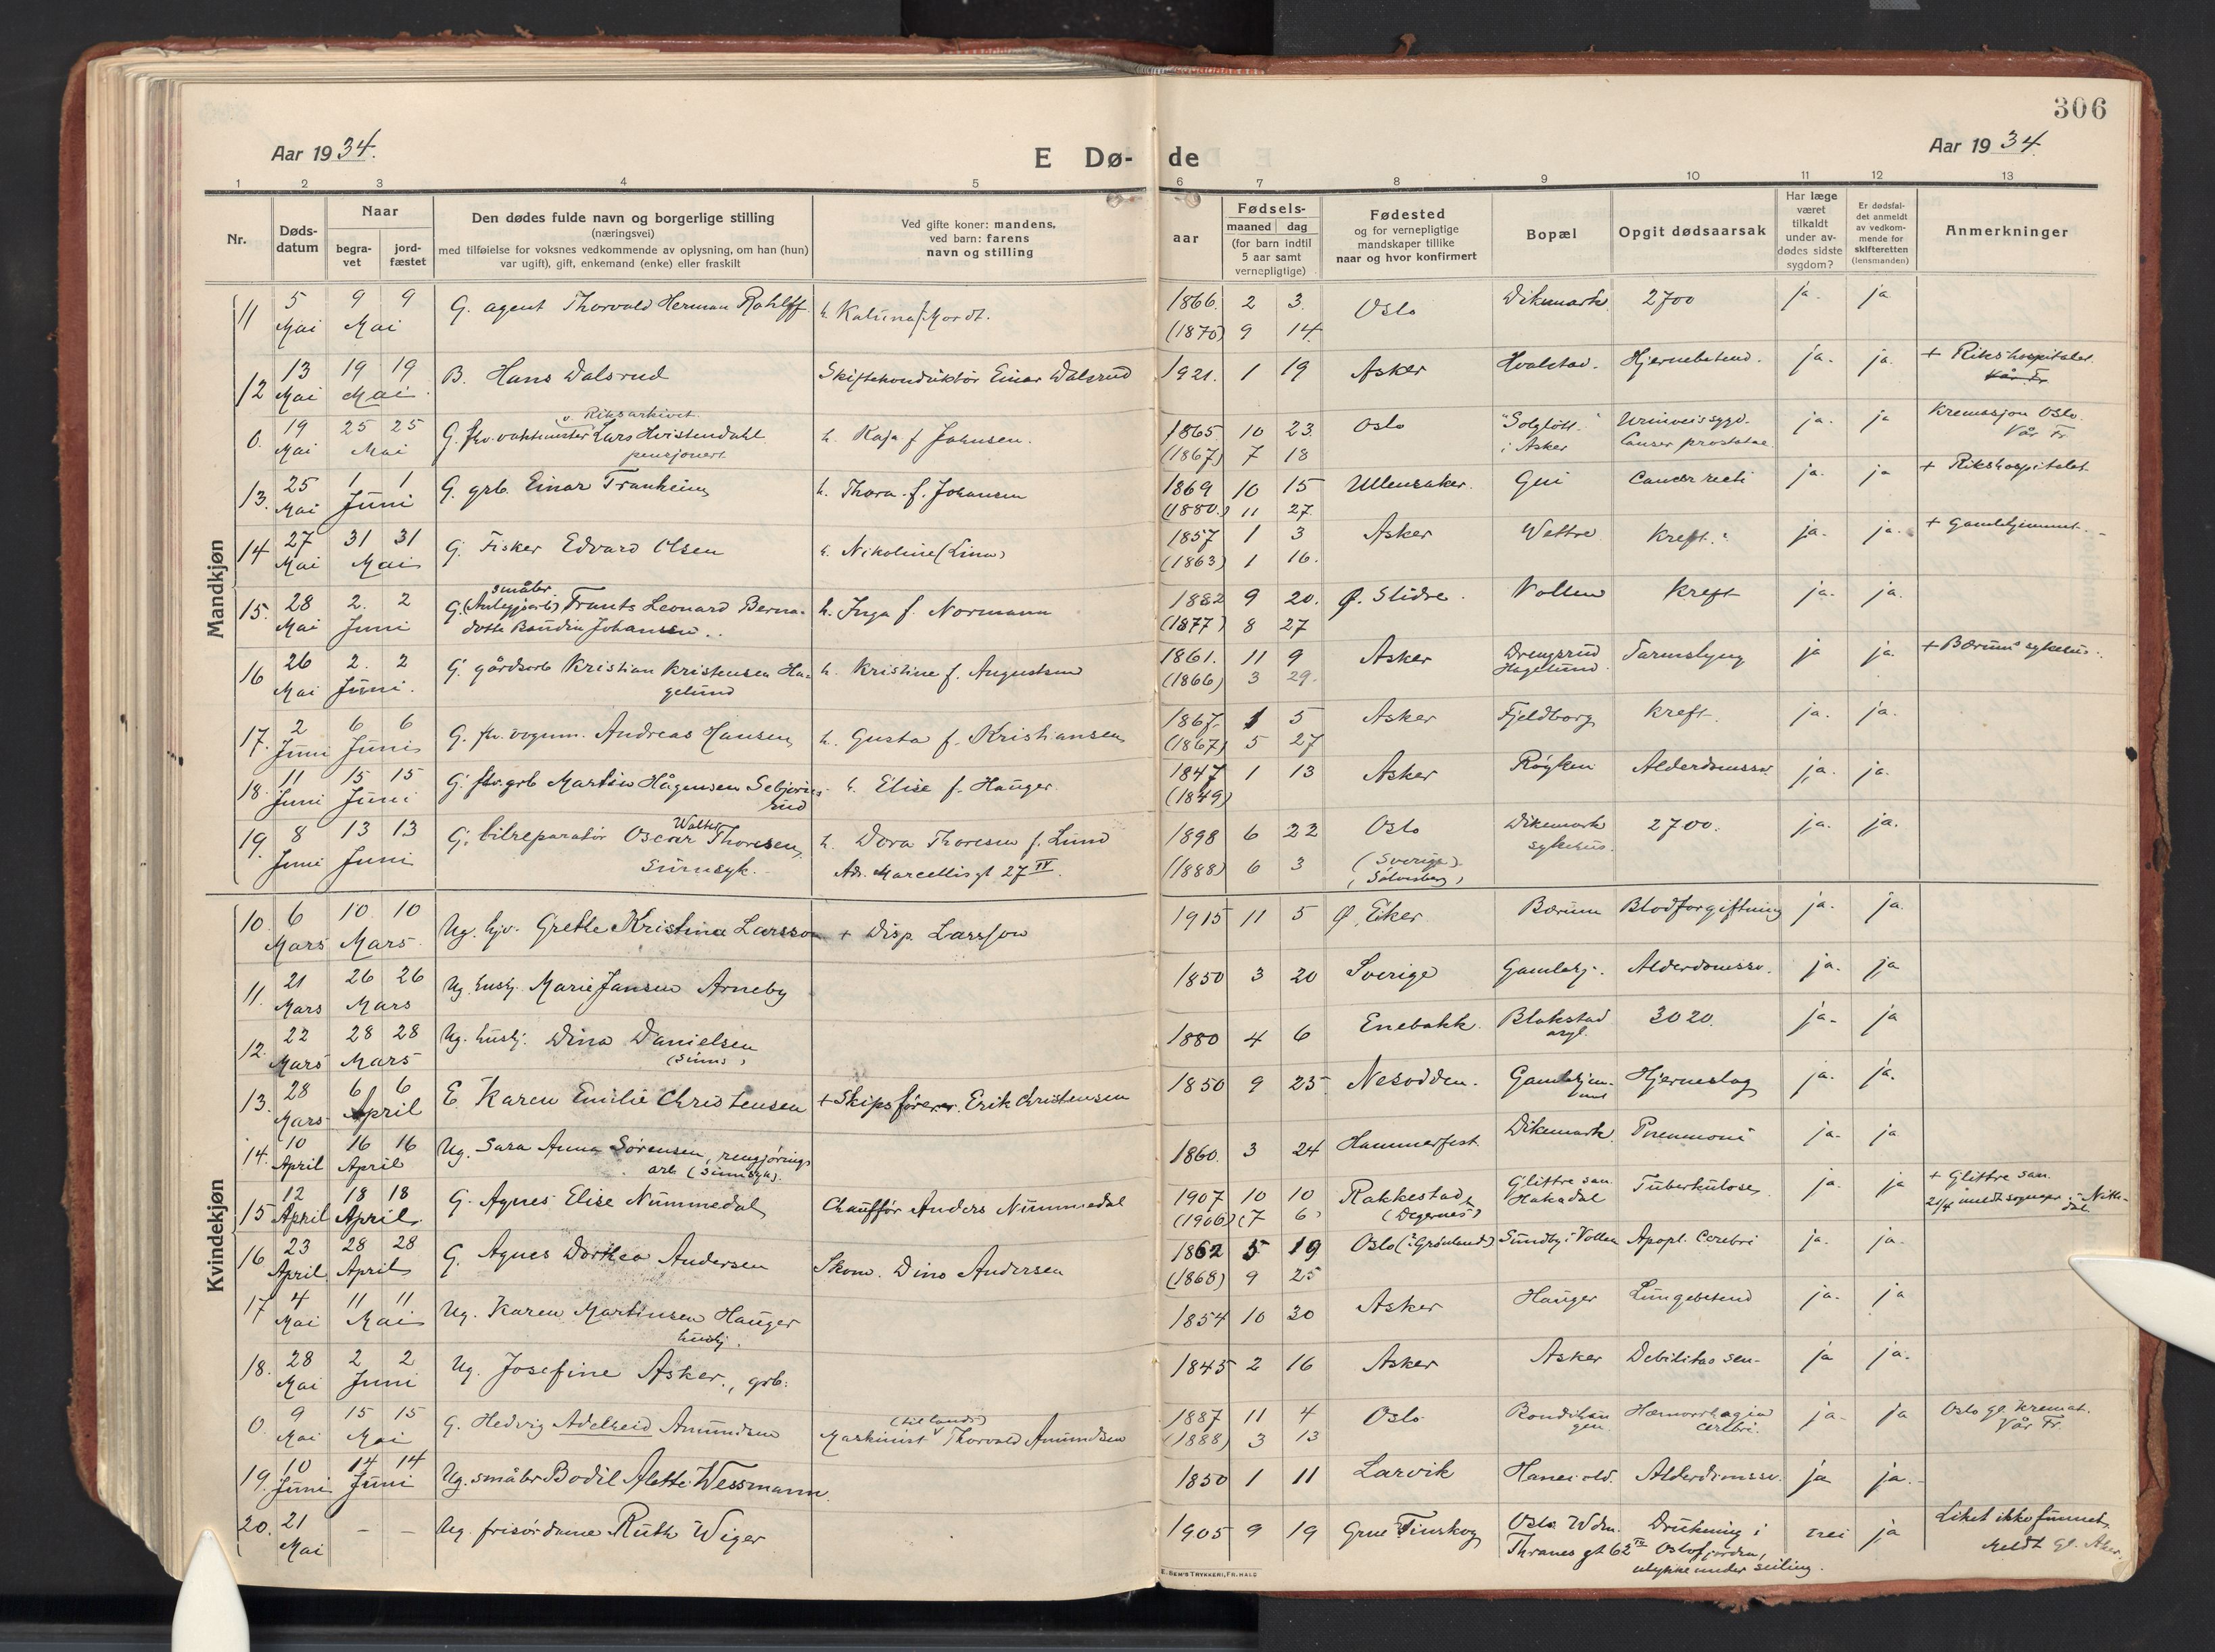 306
Aar 1934.
E Dø-
de
Aar 1934
1 2 3 4 5 6 7 8 9 10 11 12 13
Nr.
Døds-
datum
Naar
begra-
vet
jord-
fæstet
Den dødes fulde navn og borgerlige stilling
(næringsvei)
med tilføielse for voksnes vedkommende av oplysning, om han (hun)
var ugift), gift, enkemand (enke) eller fraskilt
Ved gifte koner: mandens,
ved barn: farens
navn og stilling
aar
Fødsels-
maaned dag
(for barn indtil
5 aar samt
vernepligtige)
Fødested
og for vernepligtige
mandskaper tillike
naar og hvor konfirmert
Bopæl
Opgit dødsaarsak
Har læge
været
tilkaldt
under av-
dødes sidste
sygdom?
Er dødsfal-
det anmeldt
av vedkom-
mende for
skifteretten
(lensmanden)
Anmerkninger
Mandkjøn
11 5 Mai 9 9 Mai G. agent Thorvald Herman Rahlff h. f. Mordt. 1866 2 3 Oslo Dikemark 2700 ja. ja
(1870) 9 14
12 13 Mai 19 19 Mai B. Hans Dalsrud Skiftekonduktør Einar Dalsrud 1921. 1 19 Asker Hvalstad. Hjernebetend. ja. ja. + Rikshospitalet.
Vår Fr
0. 19 Mai 25 25 Mai G. fhv. vaktmester v Riksarkivet Lars Hvistendahl h. Kaja f Johnsen. 1865 10 23 Oslo "Solgløtt" Urinveissygd. ja. ja Kremasjon Oslo.
pensjonert (1867) 7 18 i Asker Cancer prostatae Vår Fr
13. 25 Mai 1 1 Juni G. grb. Einar Tranheim h. Thora f. Johansen 1869 10 15 Ullensaker. Cancer recti ja. ja + Rikshospitalet
(1880.) 11 27.
14 27 Mai 31 31 Mai G. Fisker Edvard Olsen h. Nikoline (Lina) 1857 1 3 Asker Wettre Kreft. ja. ja. + Gamlehjemmet.
(1863) 1 16.
15. 28 Mai 2. 2 Juni G. småbr. (Anleggsarb) Frants Leonard Berna- h. Inga f. Normann 1882 9 20. Ø. Slidre. Vollen Kreft ja. ja.
dotte Baudin Johansen.. (1877) 8 27
16 26 Mai 2. 2 Juni. G. gårdsarb Kristian Kristensen Ha- h. Kristine f. Augustsen 1861. 11 9 Asker Drengsrud Tarmslyng ja ja. + Bærum sykehus.
gelund (1866) 3 29. Hagelund.
17. 2 Juni 6 6 Juni G. fhv. vognm. Andreas Hansen h. Gusta f. Kristiansen 1867. 1 5 Asker Fjeldborg Kreft. ja. ja.
(1867) 5 27
18. 11 Juni 15 15 Juni G. fhv. grb Martin Hågensen Sebjørns- h. Elise f. Hauger 1847 1 13 Asker Røyken Alderdomssv. ja. ja.
rud (1849)
19. 8 Juni 13 13 Juni G. bilreparatør Oscar Walter Thoresen, h. Dora Thoresen f. Lund 1898 6 22 Oslo Dikemark 2700. ja. ja.
sinnsyk. Adr. Marcellisgt 27 IV. (1888) 6 3 (Sverige) sykehus.
(Sølvesborg)
Kvindekjøn
10. 6 Mars 10 10 Mars. Ug. hjv. Grethe Kristina Larsson + Disp. Larsson 1915 11 5 Ø. Eiker Bærum Blodforgiftning ja. ja.
11. 21 Mars 26 26 Mars Ug. hushj. Marie Jansen Arneby 1850 3 20 Sverige Gamlehj. Alderdomssv. ja. ja
12. 22 Mars 28 28 Mars Ug. hushj. Dina Danielsen 1880 4 6 Enebakk. Blakstad 3020. ja. ja
(sinns) asyl.
13. 28 Mars 6 6 April E Karen Emilie Christensen + Skipsfører Erik Christensen 1850 9 25 Nesodden. Gamlehjem- Hjerneslag ja. ja.
met
14. 10 April 16 16 April Ug. Sara Anna Sørensen, rengjørings 1860. 3 24 Hammerfest. Dikemark Pneumoni ja. ja
arb (sinnsyk)
15 12 April 18 18 April. G. Agnes Elise Nummedal Chauffør Anders Nummedal 1907 10 10 Rakkestad Glittre san. Tuberkulose, ja. ja + Glittre san.
(1906) (7 6) (Degernes) Hakadal 21/4 meldt sognepr. i Nitte-
dal
16 23 April 28 28 April G. Agnes Dorthea Andersen Skom. Dino Andersen 1862 5 19 Oslo (Grønland) Sundby i Vollen Apopl. Cerebri ja. ja.
(1868) 9 25
17 4 Mai 11 11 Mai Ug. Karen Martinsen Hauger 1854 10 30 Asker Hauger Lungebetend ja. ja
hushj.
18. 28 Mai 2 2 Juni Ug. Josefine Asker., grb. 1845 2 16 Asker Asker Debilitas sen- ja ja.
0. 9 Mai 15 15 Mai G. Hedvig Adelheid Amundsen Maskinist (til lands) Thorvald Amundsen 1887 11 4 Oslo Bondilian Hæmorrhagia ja. ja Oslo gl. Kremat.
(1888) 3 13 gen. cerebri. Vår Fr.
19. 10 Juni 14 14 Juni Ug. småbr Bodil Alette Wessmann. 1850 1 11 Larvik Alderdomssv. ja ja.
20. 21 Mai - - Ug. frisørdame Ruth Wiger 1905 9 19 Grue Finskog Oslo Wdm. Drukning i nei ja Liket ikke funnet,
Thranes gt 62 IV Oslofjorden, Meldt Gl. Aker.
ulykke under seiling.
E. SEM'S TRYKKERI, FR.HALD